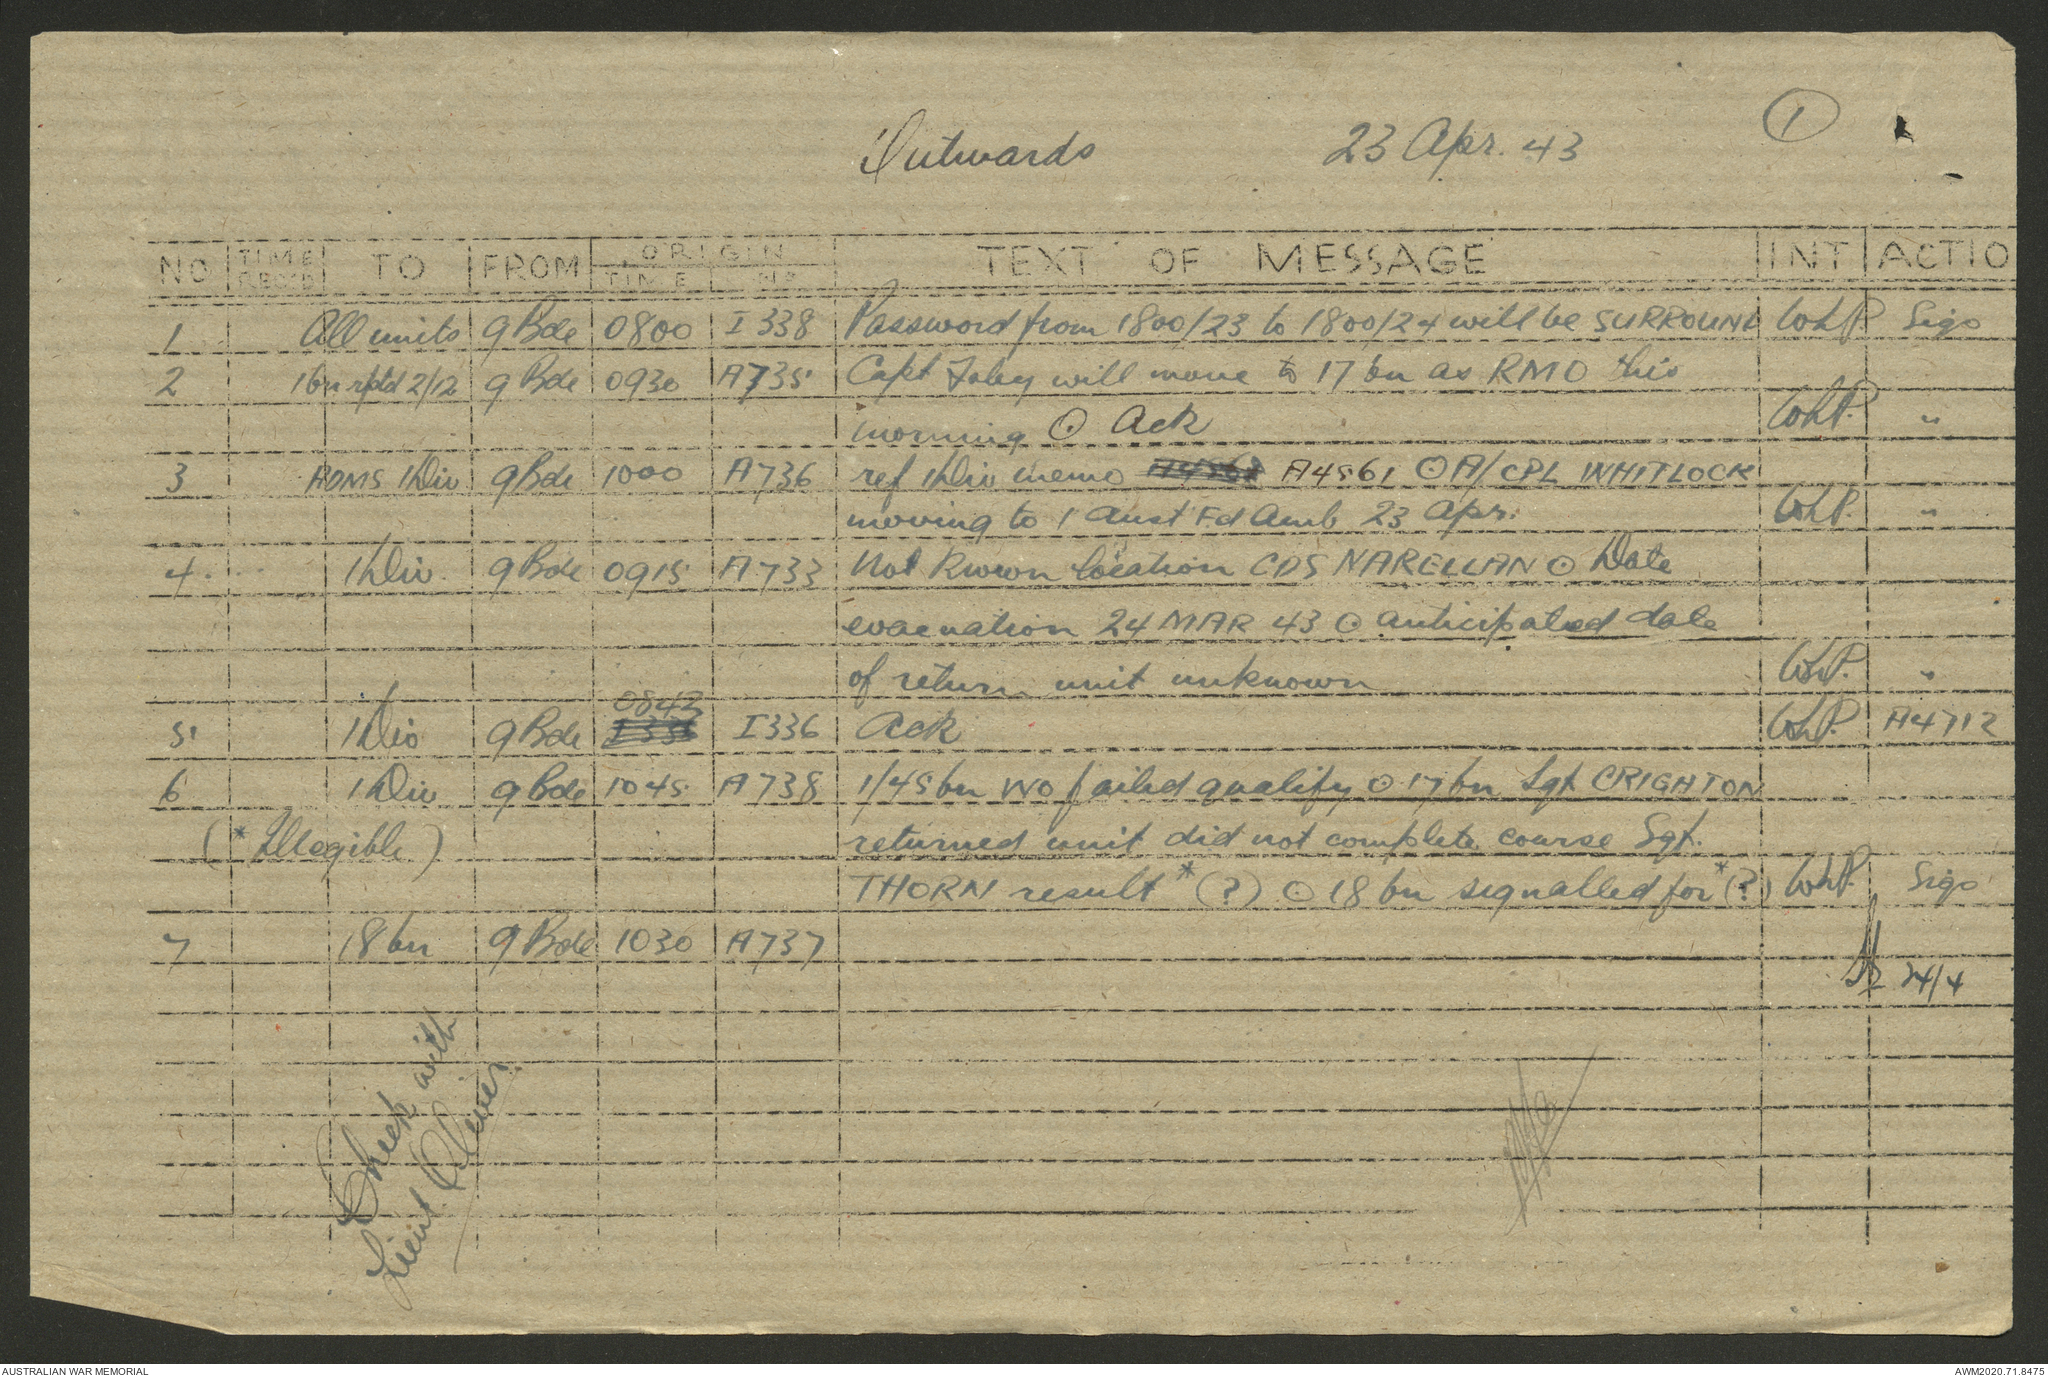 Outwards 23 Apr. 43 1
NO TIME REC'D TO FROM ORIGIN TIME No TEXT OF MESSAGE INT ACTIO
1 All units 9 Bde 0800 I 338 Password from 1800/23 to 1800/24 will be SURROUND WhP Sigs
2 1 bn rptd 2/12 9 Bde 0930 A735 Capt Foley will move to 17 bn as RMO this
morning ⊙ Ack WhP. "
3 ADMS 1 Div 9 Bde 1000 A736 ref 1 Div memo A4561 ⊙ A/CPL WHITLOCK
moving to 1 Aust Fd Amb 23 Apr. WhP. "
4. 1 Div. 9 Bde 0915 A733 Not known location CDS NARELLAN ⊙ Date
evacuation 24 MAR 43 ⊙ anticipated date
of return unit unknown WhP. "
0843
5 1 Div 9 Bde I336 Ack WhP. A4712
6 1 Div 9 Bde 1045 A738 1/45 bn WO failed qualify ⊙ 17 bn Sgt CRIGHTON
(* Illegible) returned unit did not complete course Sgt.
THORN result * (?) ⊙ 18 bn signalled for * (?) WhP. Sigs
7 18 bn 9 Bde 1030 A737
24/4
Check with
Lieut. Oliver.
AUSTRALIAN WAR MEMORIAL AWM2020.71.8475